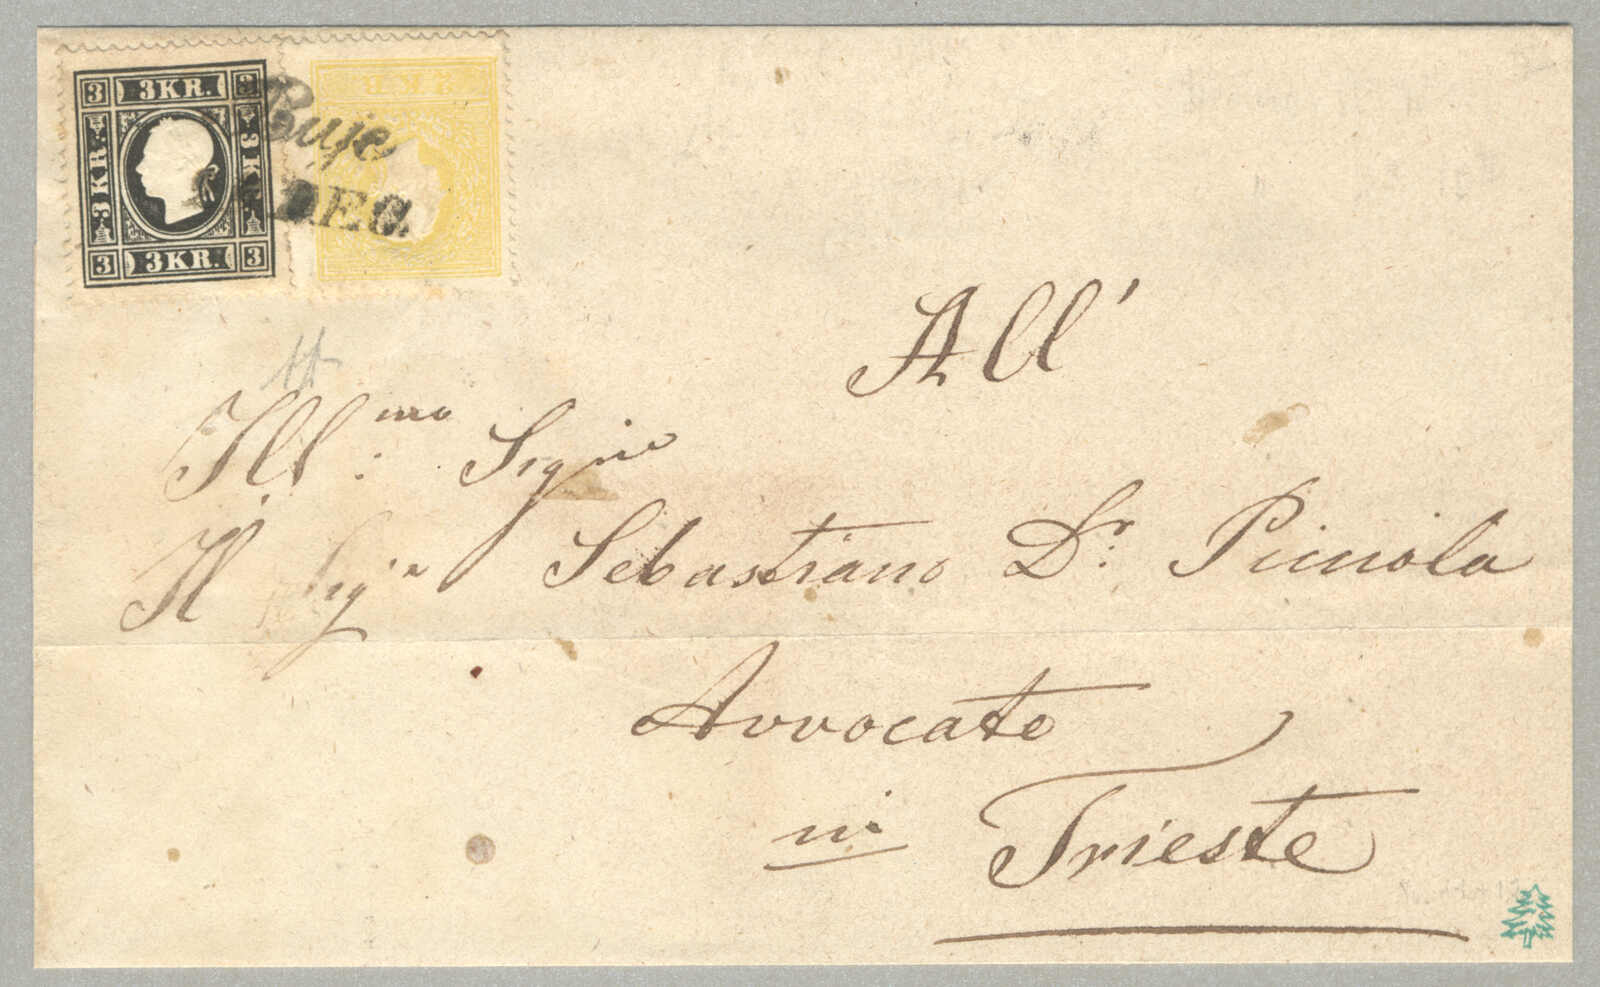 3 3KR. 3
3 KR. 3 KR.
3 3KR. 3
2 KR
Buje
DEC.
All'
Ill:mo Sigre
Il Sigr Sebastiano Dr: Pimola
Avvocato
in Trieste